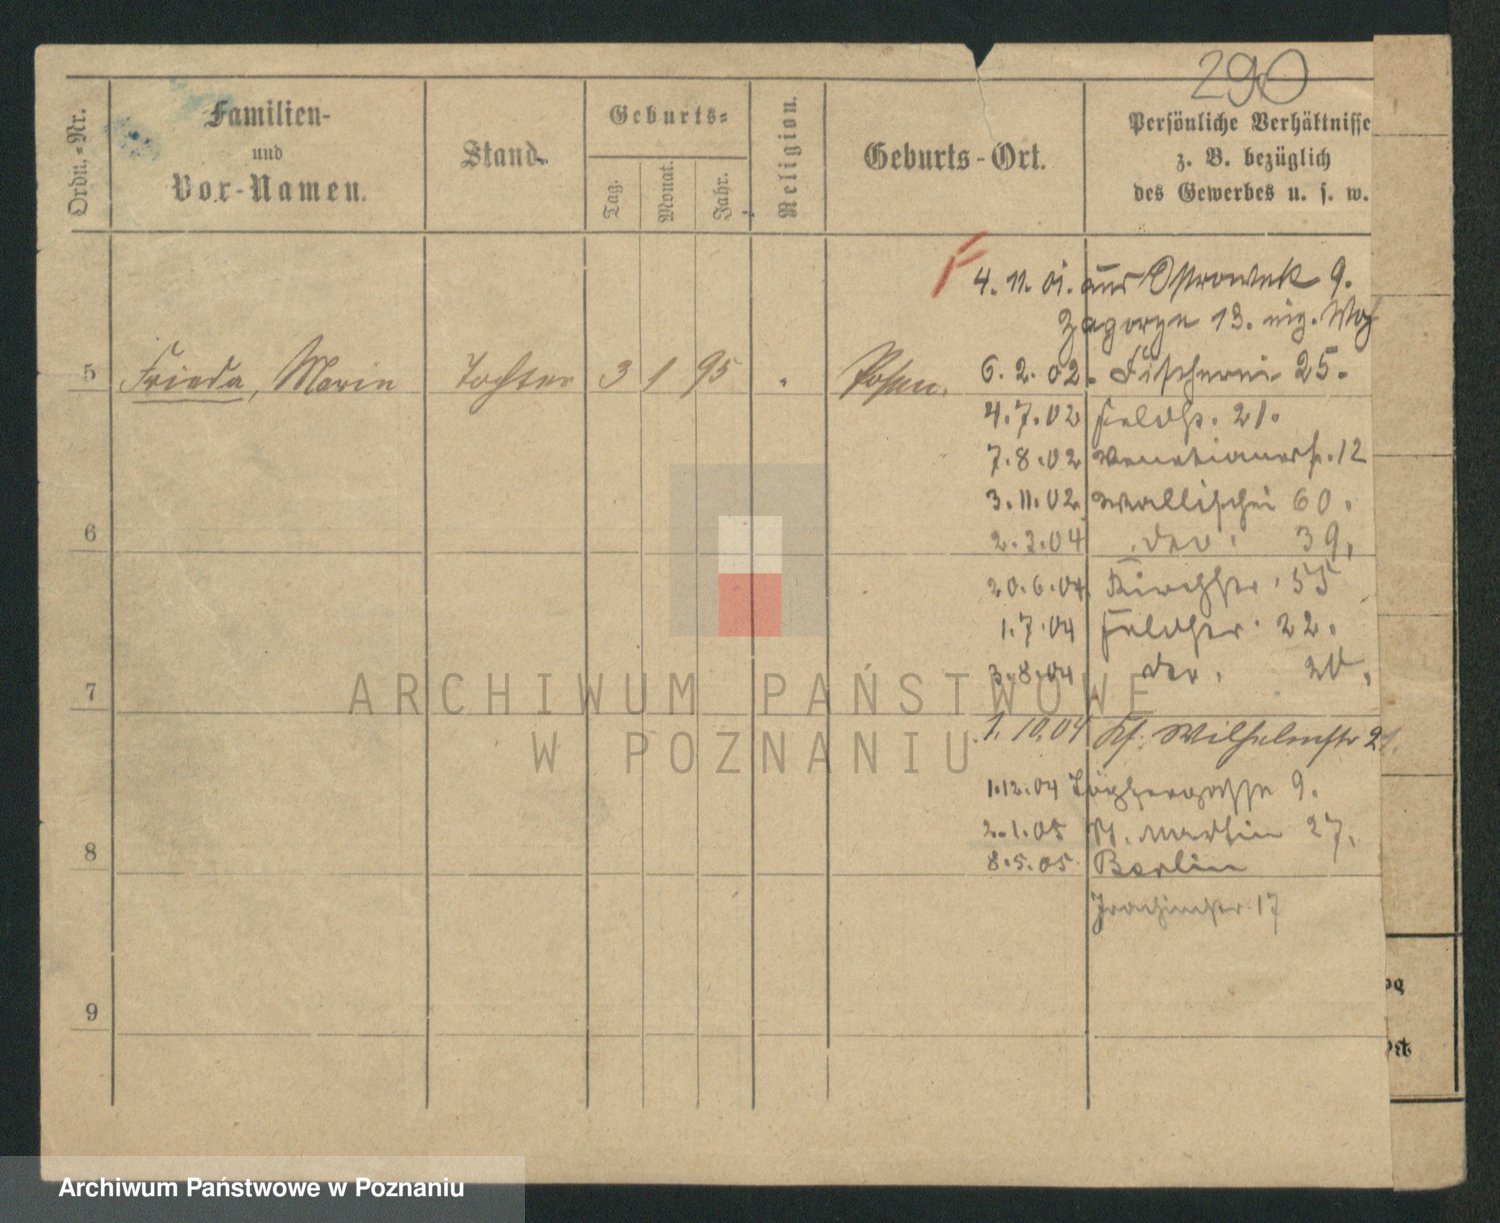 290
Ordn.-Nr.
Familien-
und
Vor-Namen.
Stand.
Geburts-
Tag.
Monat.
Jahr.
Religion.
Geburts-Ort.
Persönliche Verhältnisse
z. B. bezüglich
des Gewerbes u. s. w.
4. 11. 01. aus Ostrowek 9.
Zagorze 13.
5 Frieda, Marie Tochter 3 1 95 Posen.
6. 2. 02. Fischerei 25.
4. 7. 02 Feldstr. 21.
7. 8. 02 Venetianerstr. 12
3. 11. 02 Wallischei 60.
6
2. 3. 04 39,
20. 6. 04 Kirchstr. 55
1. 7. 04 Feldstr. 22.
7
3. 8. 04 20,
1. 10. 04 Wilhelmstr 21.
1. 12. 04 Töpfergasse 9.
2. 1. 05 St. Martin 27,
8
8. 5. 05 Berlin
Joachimstr 17
9
ARCHIWUM PAŃSTWOWE
W POZNANIU
Archiwum Państwowe w Poznaniu